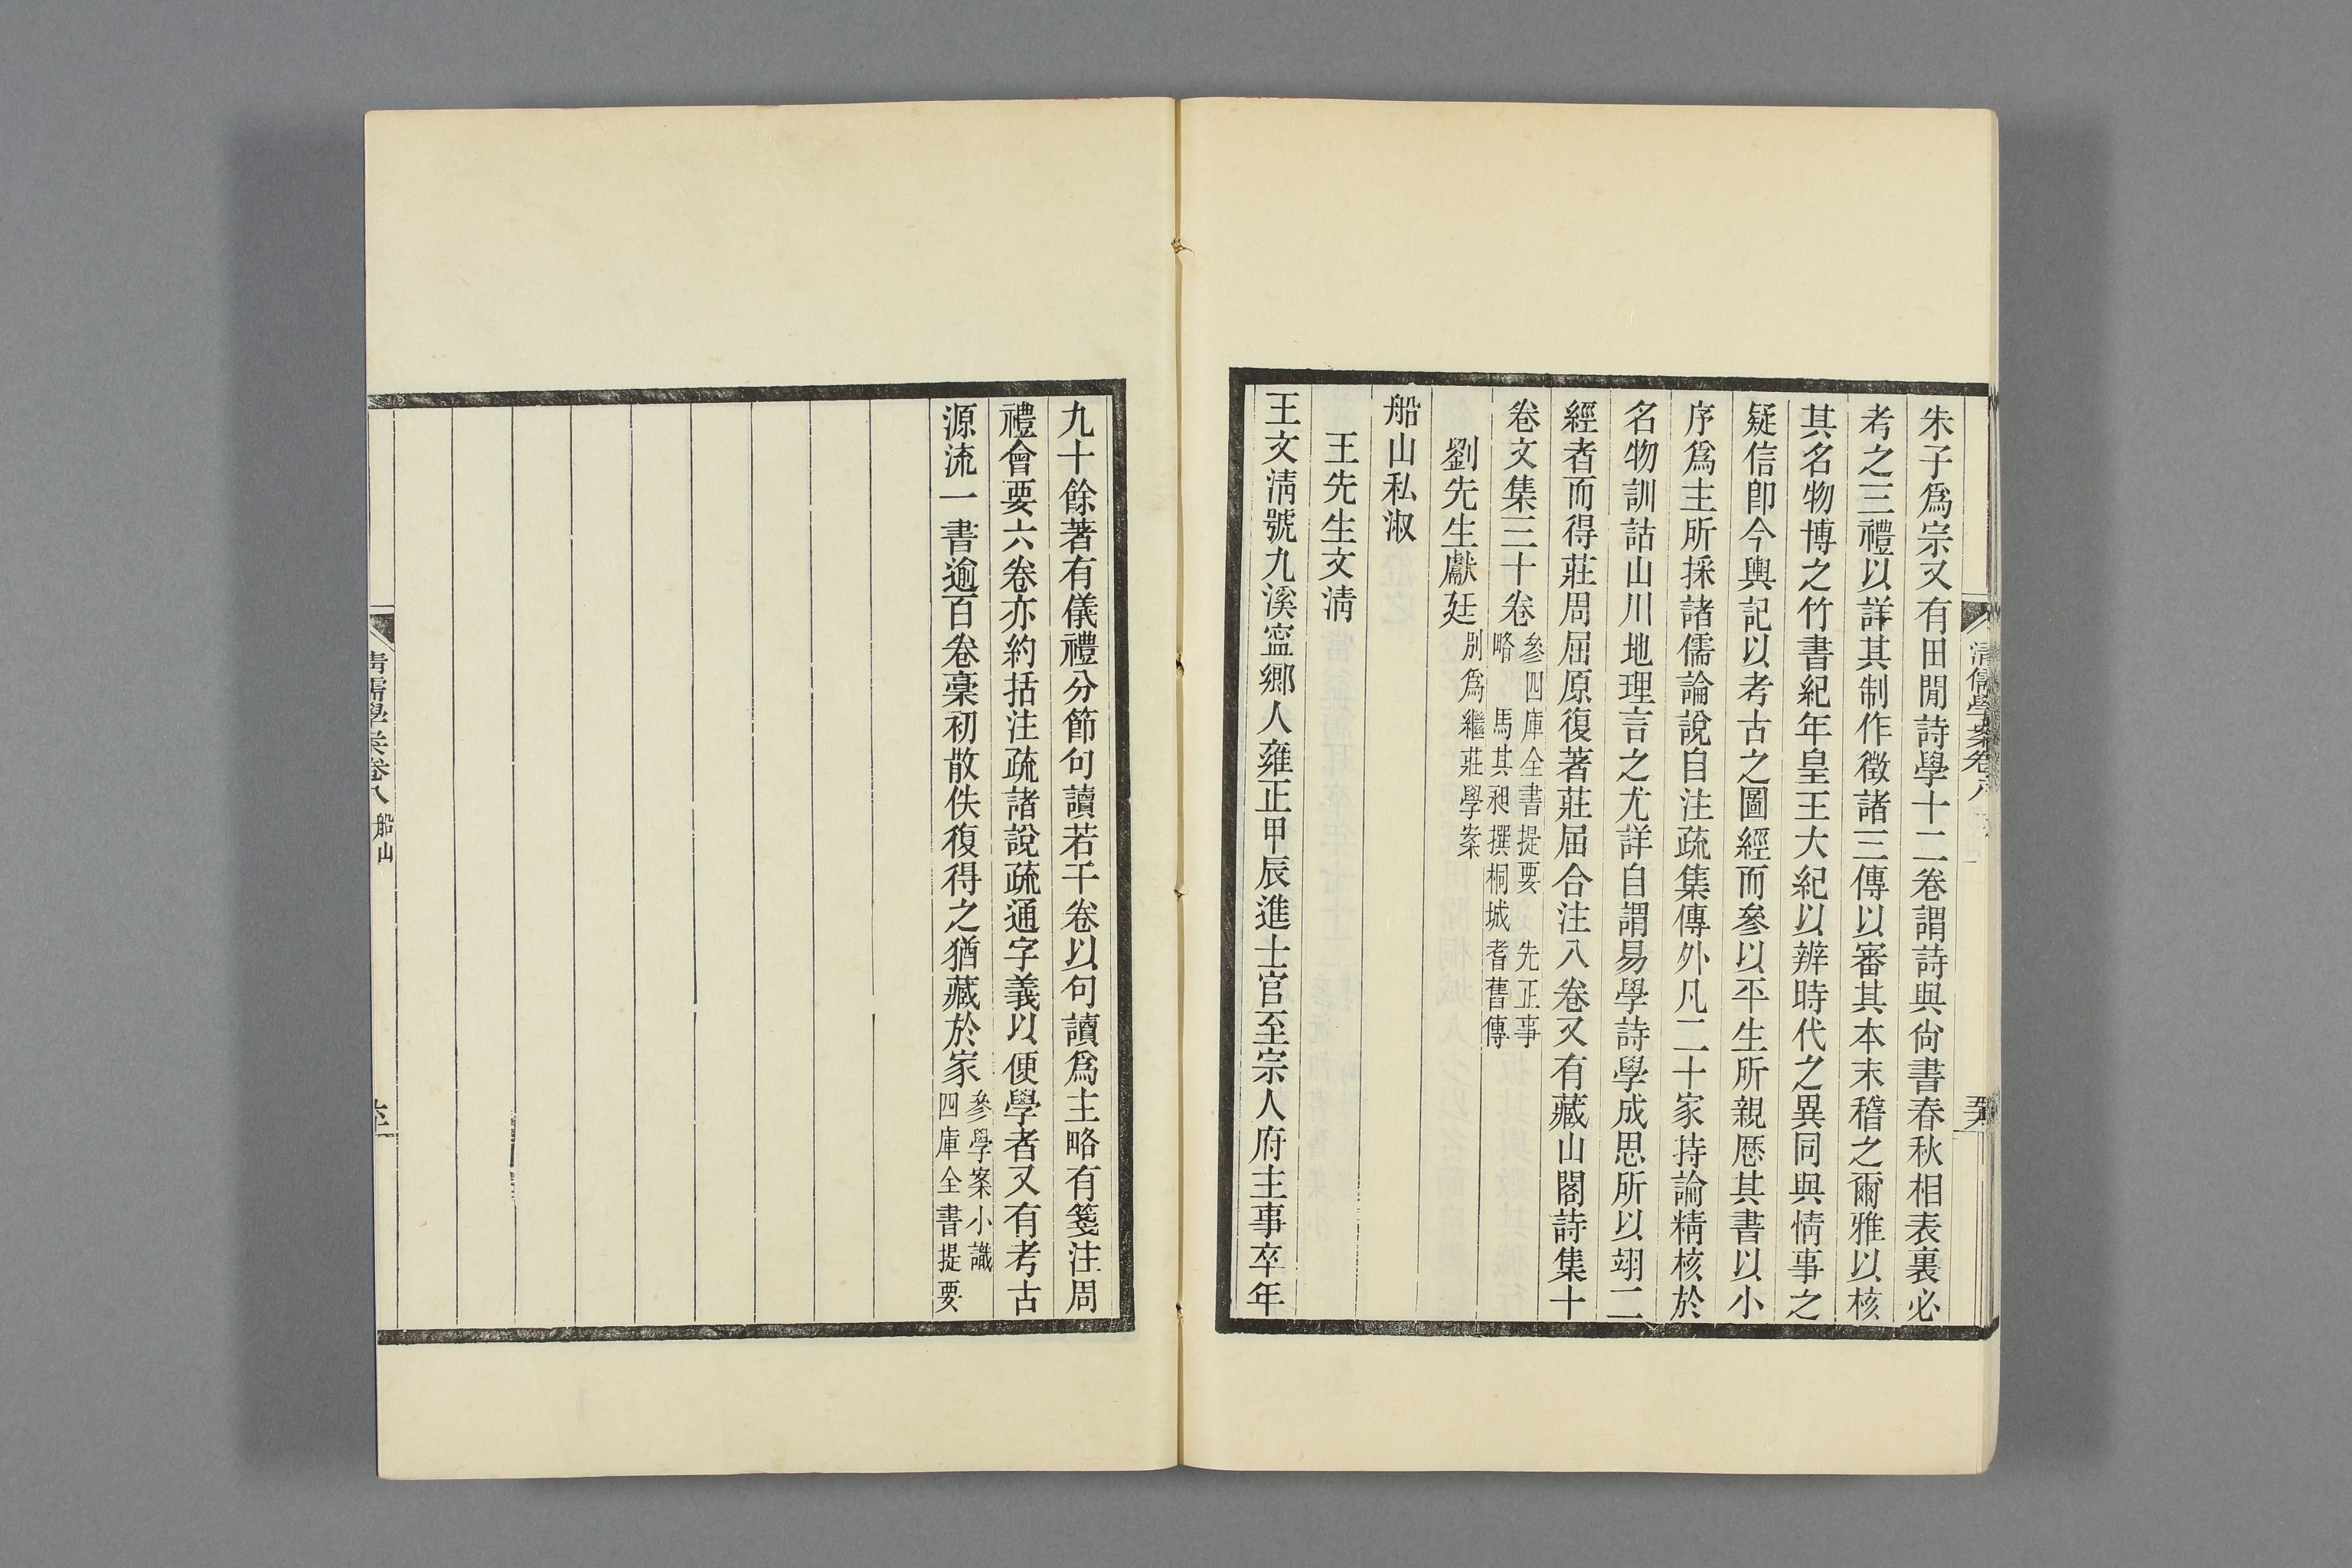 清儒學案卷八
朱子爲宗又有田閒詩學十二卷謂詩與尙書春秋相表裏必
考之三禮以詳其制作徵諸三傳以審其本末稽之爾雅以核
其名物博之竹書紀年皇王大紀以辨時代之異同與情事之
疑信卽今輿記以考古之圖經而參以平生所親歷其書以小
序爲主所採諸儒論說自注疏集傳外凡二十家持論精核於
名物訓詁山川地理言之尤詳自謂易學詩學成思所以翊二
經者而得莊周屈原復著莊屈合注八卷又有藏山閣詩集十
卷文集三十卷參四庫全書提要 先正事
略 馬其昶撰桐城耆舊傳
劉先生獻廷別爲繼莊學案
船山私淑
王先生文淸
王文淸號九溪寍鄉人雍正甲辰進士官至宗人府主事卒年
九十餘著有儀禮分節句讀若干卷以句讀爲主略有箋注周
禮會要六卷亦約括注疏諸說疏通字義以便學者又有考古
源流一書逾百卷稾初散佚復得之猶藏於家參學案小識
四庫全書提要
清儒學案卷八 船山